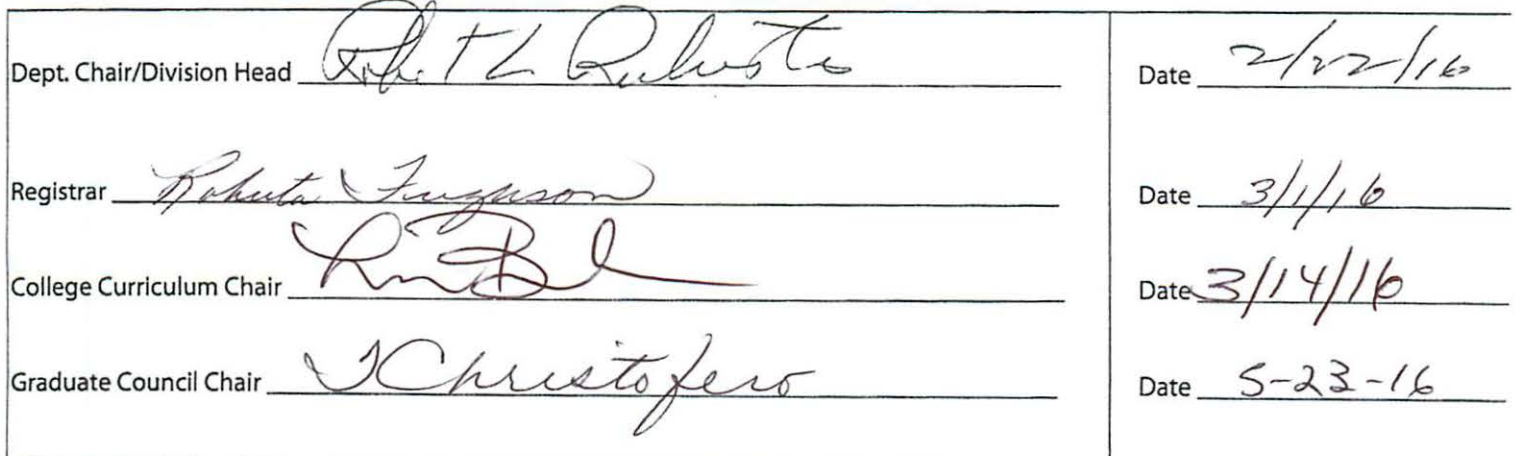 Dept. Chair/Division Head Date 2/22/16
Registrar Roberta Ferguson Date 3/1/16
College Curriculum Chair Date 3/14/16
Graduate Council Chair TChristofero Date 5-23-16